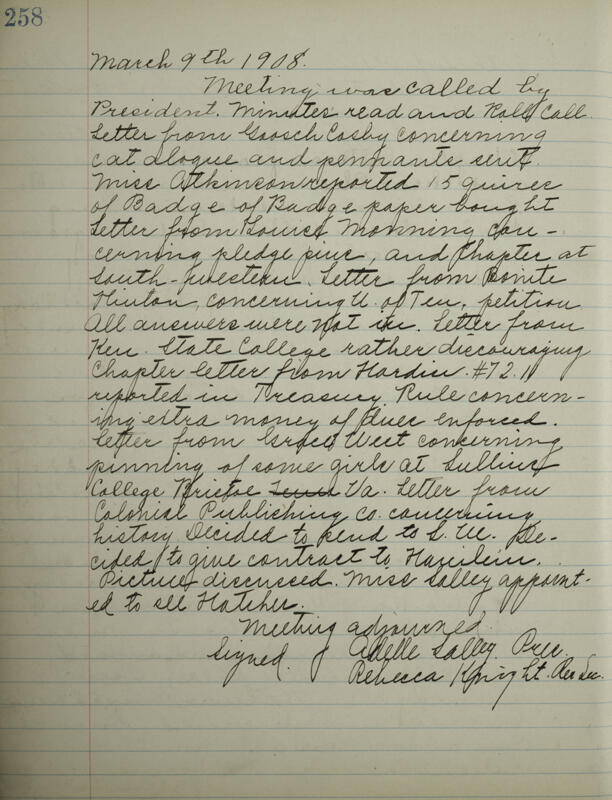 258
March 9th 1908.
Meeting was called by
President. Minutes read and Roll Call.
Letter from Goosch Cosby concerning
catalogue and pennants sent.
Miss Atkinson reported 15 quires
of Badge of Badge paper bought
Letter from Louise Monning con-
cerning pledge pins, and Chapter at
South-western. Letter from
Hinton, concerning U. of Ten. petition.
All answers were not in. Letter from
Ken. State College rather discouraging
Chapter letter from Hardin. #72.11
reported in Treasury. Rule concern-
ing extra money of dues enforced.
Letter from Grace West concerning
pinning of some girls at Sullins
College Bristol Tenn Va. Letter from
Colonial Publishing Co. concerning
history Decided to send to S. W. De-
cided to give contract to Hamlin.
Picture discussed. Miss Salley appoint-
ed to see Hatcher.
Meeting adjourned.
Signed. Adelle Salley. Pres.
Rebecca Knight. Rec Sec.